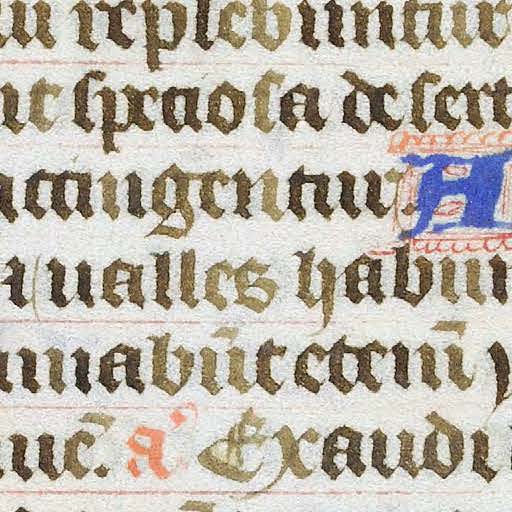 replebuntur
speciosa desert
accingentur. A
ualles habun
mabūt etenī
a' Exaudi